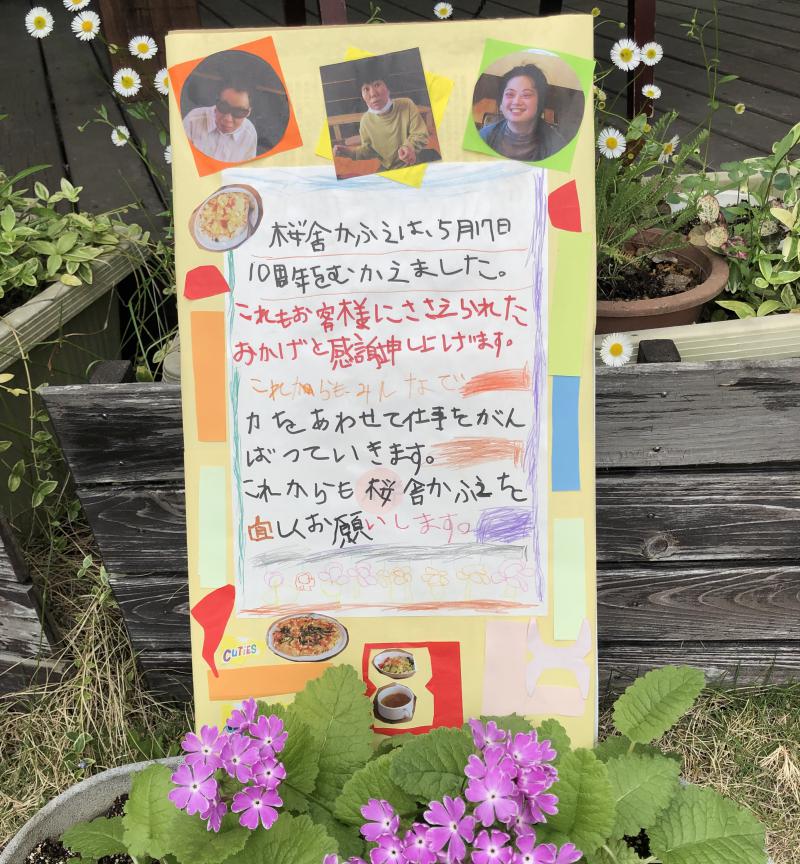 桜舎かふえは、5月17日
10周年をむかえました。
これもお客様にささえられた
おかげと感謝申し上げます。
これからもみんなで
力をあわせて仕事をがん
ばっていきます。
これからも桜舎かふえを
宜しくお願いします。
CUTiES